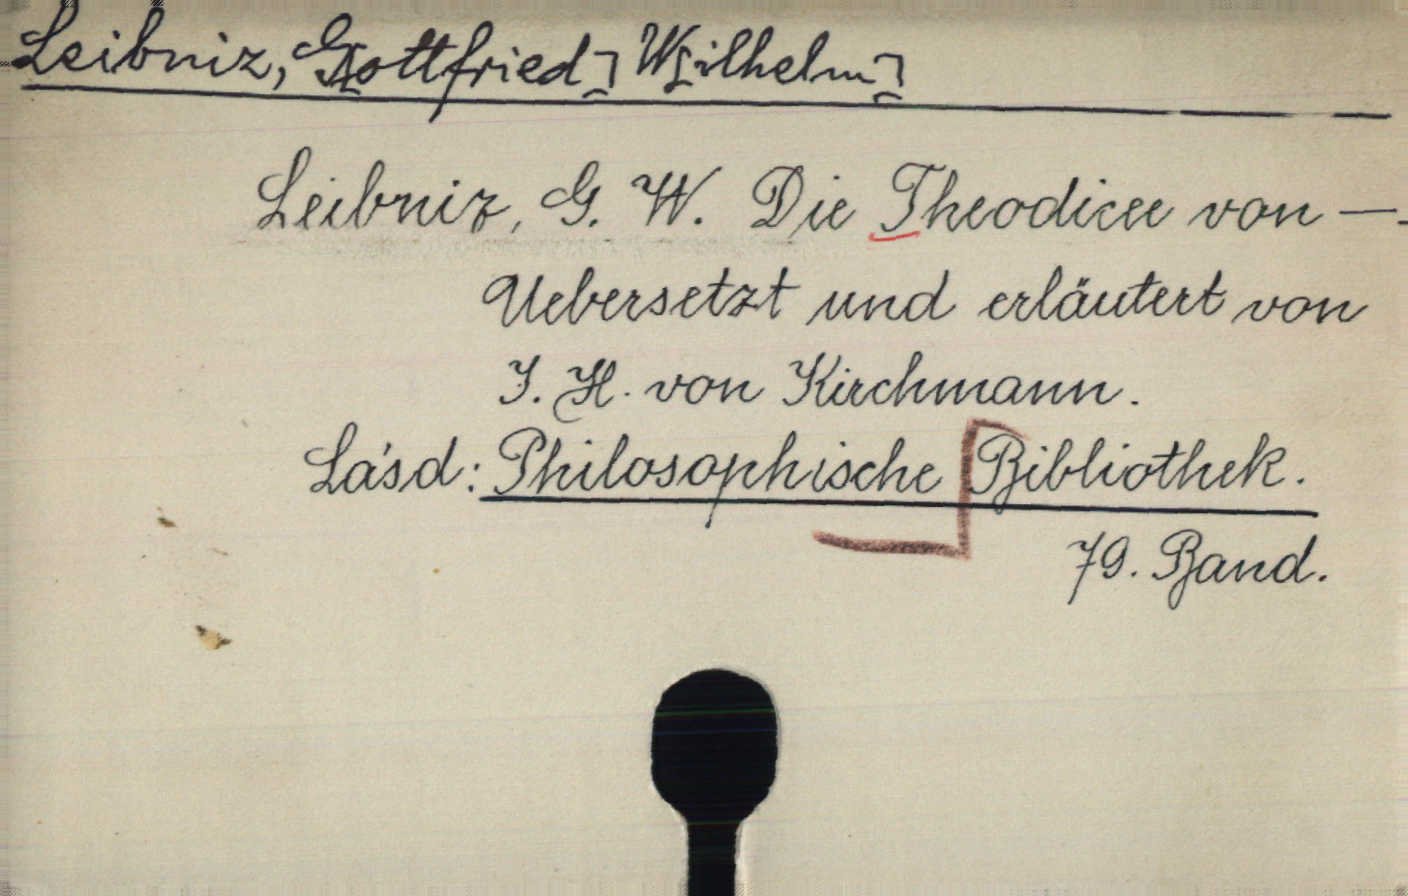 Leibniz, G[ottfried] W[ilhelm]
Leibniz, G. W. Die Theodicee von —.
Uebersetzt und erläutert von
J. H. von Kirchmann.
Lásd: Philosophische Bibliothek.
79. Band.